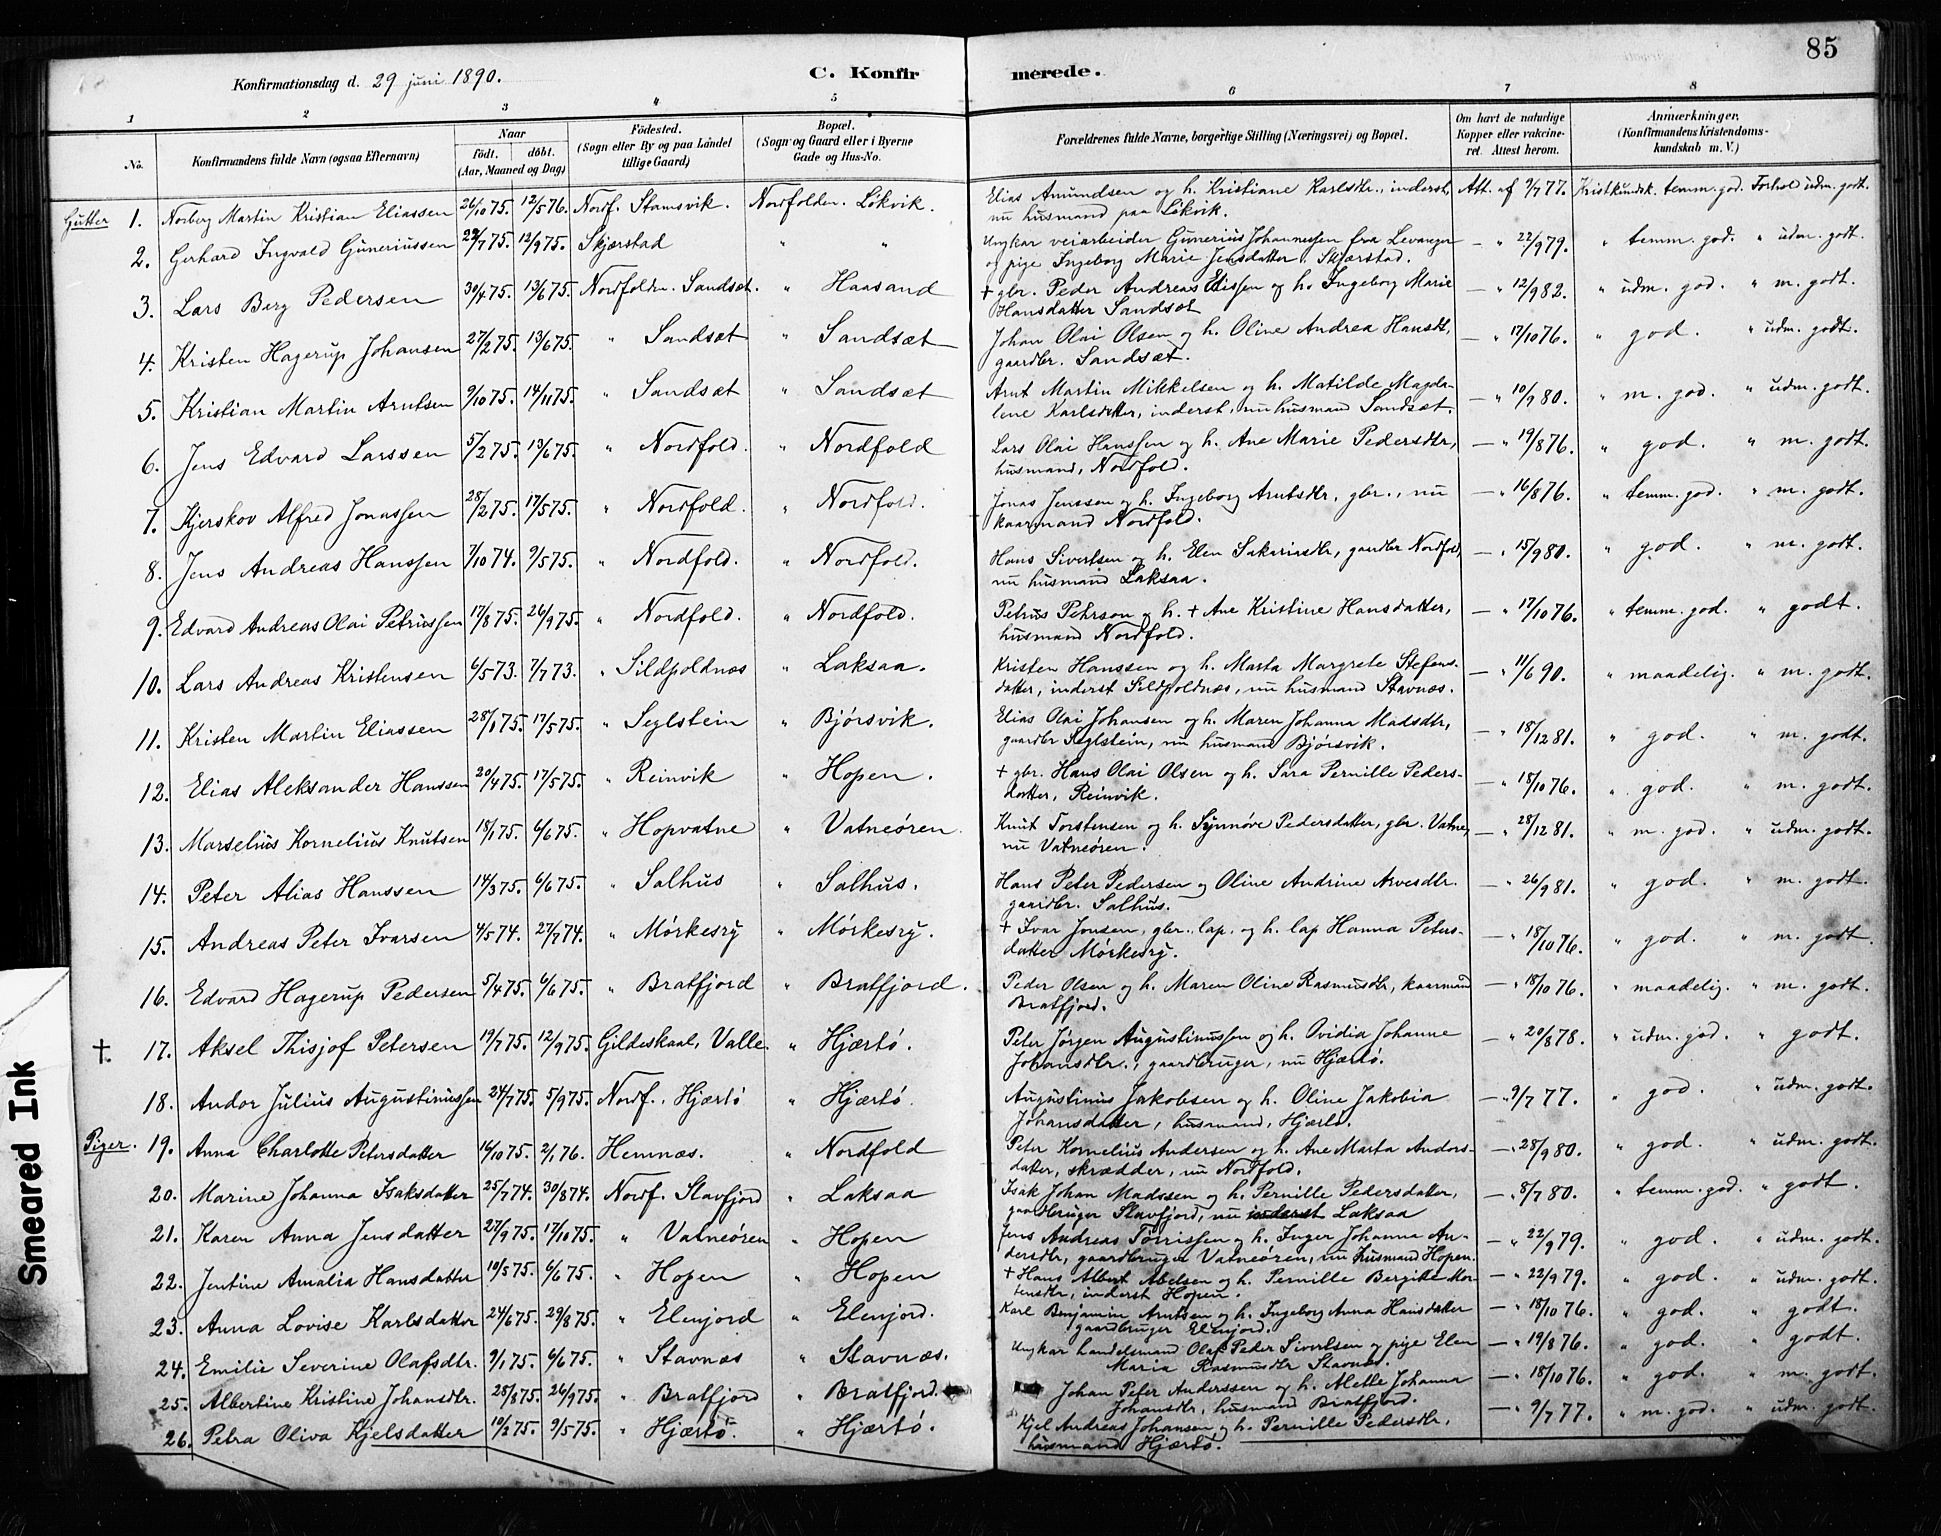 85
Konfirmationsdag d. 29 juni 1890.
C. Konfirmerede.
1 2 3 4 5 6 7 8
No. Konfirmandens fulde Navn (ogsaa Efternavn) Naar født. døbt. (Aar, Maaned og Dag) Fødested. (Sogn eller By og paa Landet tillige Gaard) Bopæl. (Sogn og Gaard eller i Byerne Gade og Hus-No. Forældrenes fulde Navne, borgerlige Stilling (Næringsvei) og Bopæl. Om havt de naturlige Kopper eller vakcineret. Attest herom. Anmærkninger. (Konfirmandens Kristendomskundskab m. V.)
Gutter 1. Norberg Martin Kristian Eliassen 26/10 75. 12/5 76. Nordf. Stamsvik. Nordfolden. Løkvik. Elias Amundsen og h. Kristiane Karlsdtr., inderst, nu husmand paa Løkvik. Att. af 9/7 77. Kristkundsk. temm. god. Forhold udm. godt.
2. Gerhard Ingvald Guneriussen 29/7 75. 12/9 75. Skjærstad " " Ungkar veiarbeider Gunerius Johannessen fra Levanger og pige Ingeborg Marie Jensdatter, Skjærstad. — " 22/9 79. " temm. god. " udm. godt.
3. Lars Berg Pedersen 30/4 75. 13/6 75. Nordfolden. Sandsæt. " Haasand + gbr. Peder Andreas Elissen og h. Ingeborg Marie Hansdatter Sandsæt — " 12/9 82. " udm. god. " m. godt.
4. Kristen Hagerup Johansen 27/2 75. 13/6 75. " Sandsæt " Sandsæt Johan Olai Olsen og h. Oline Andrea Hansdt, gaardbr. Sandsæt. — " 17/10 76. " god. " udm. godt.
5. Kristian Martin Arntsen 9/10 75. 14/11 75. " Sandsæt " Sandsæt Arnt Martin Mikkelsen og h. Matilde Magdalene Karlsdatter, inderst, nu husmand Sandsæt. — " 10/9 80. " m. god. " udm. godt.
6. Jens Edvard Larssen 5/2 75. 13/6 75. " Nordfold. " Nordfold Lars Olai Hanssen og h. Ane Marie Pedersdtr, husmand, Nordfold. — " 19/8 76. " god. " m. godt.
7. Kjerskov Alfred Jonassen 28/2 75. 17/5 75. " Nordfold. " Nordfold. Jonas Jenssen og h. Ingeborg Arntsdtr, gbr., nu kaarmand Nordfold. — " 16/8 76. " temm. god. " m. godt.
8. Jens Andreas Hanssen 7/10 74. 9/5 75. " Nordfold. " Nordfold. Hans Sivertsen og h. Elen Sakariasdtr, gaardbr Nordfold, nu husmand Laksaa. — " 15/9 80. " god. " m. godt.
9. Edvard Andreas Olai Petrussen 17/8 75. 26/9 75. " Nordfold. " Nordfold. Petrus Pehrson og h. + Ane Kristine Hansdatter, husmand Nordfold. — " 17/10 76. " temm. god. " godt.
10. Lars Andreas Kristensen 6/5 73. 7/7 73. " Sildpoldnæs " Laksaa. Kristen Hanssen og h. Marta Margrete Stefensdatter, inderst Sildpoldnæs, nu husmand Stavnæs. — " 11/6 90. " maadelig. " m. godt.
11. Kristen Martin Eliassen 28/1 75. 17/5 75. " Seglstein " Bjørsvik. Elias Olai Johansen og h. Maren Johanna Madsdtr, gaardbr Seglstein, nu husmand Bjørsvik. — " 18/12 81. " god. " m. godt.
12. Elias Aleksander Hanssen 20/4 75. 17/5 75. " Reinvik " Hopen. + gbr. Hans Olai Olsen og h. Sara Pernille Pedersdatter, Reinvik. — " 18/10 76. " god. " m. godt.
13. Marselius Kornelius Knutsen 18/1 75. 6/6 75. " Hopvatne " Vatneøren. Knut Torstensen og h. Synnøve Pedersdatter, gbr. Vatne, nu Vatneøren. — " 28/12 81. " m. god. " udm. godt.
14. Peter Alias Hanssen 14/3 75. 6/6 75. " Salhus " Salhus. Hans Peter Pedersen og Oline Andrine Arvesdtr. gaardbr. Salhus. — " 26/9 81. " god. " m. godt.
15. Andreas Peter Ivarsen 4/5 74. 27/7 74. " Mørkesry " Mørkesry. + Ivar Jonsen, gbr. lap. og h. lap Hanna Petersdatter Mørkesry. — " 18/10 76. " god. " m. godt.
16. Edvard Hagerup Pedersen 5/4 75. 6/6 75. " Bratfjord " Bratfjord. Peder Olsen og h. Maren Oline Rasmusdtr, kaarmand Bratfjord. — " 18/10 76. " maadelig. " m. godt.
†. 17. Aksel Thisjof Petersen 19/7 75. 12/9 75. Gildeskaal, Valle. " Hjærtø. Peter Jørgen Augustinussen og h. Ovidia Johanne Johansdtr., gaardbruger, nu Hjærtø. — " 20/8 78. " udm. god. " godt.
18. Andor Julius Augustinussen 24/7 75. 5/9 75. Nordf., Hjærtø " Hjærtø. Augustinus Jakobsen og h. Oline Jakobia Johansdatter, husmand, Hjærtø. — " 9/7 77. " god. " udm. godt.
Piger. 19. Anna Charlotte Petersdatter 14/10 75. 2/1 76. Hemnæs. " Nordfold Peter Kornelius Andersen og h. Ane Marta Andorsdatter, skrædder, nu Nordfold. — " 28/9 80. " god. " udm. godt.
20. Marine Johanna Isaksdatter 25/7 74. 30/8 74. Nordf. Stavfjord " Laksaa Isak Johan Madssen og h. Pernille Pedersdatter, gaardbruger Stavfjord, nu inderst Laksaa — " 8/7 80. " temm. god. " godt.
21. Karen Anna Jensdatter 27/9 75. 17/10 75. " Vatneøren " Hopen Jens Andreas Tørrissen og h. Inger Johanna Andersdtr, gaardbruger Vatneøren, nu husmand Hopen. — " 22/9 79. " god. " udm. godt.
22. Jentine Amalia Hansdatter 10/5 75. 6/6 75. " Hopen " Hopen + Hans Albert Abelsen og h. Pernille Bergitte Mortensdtr, inderst Hopen. — " 22/9 79. " god. " udm. godt.
23. Anna Lovise Karlsdatter 24/6 75. 29/8 75. " Elenjord " Elenjord. Karl Benjamin Arntsen og h. Ingeborg Anna Hansdatter gaardbruger Elenjord. — " 18/10 76. " god. " godt.
24. Emilie Severine Olafsdtr. 9/1 75. 6/6 75. " Stavnæs " Stavnæs. Ungkar handelsmand Olaf Peder Sivertsen og pige Elen Maria Rasmusdtr Stavnæs. — " 19/8 76. " god. " godt.
25. Albertine Kristine Johansdtr. 28/8 75. 26/9 75. " Bratfjord " Bratfjord. Johan Peter Anderssen og h. Alette Johanna Johansdtr, husmand Bratfjord. — " 18/10 76. " god. " m. godt.
26. Petra Oliva Kjelsdatter 10/2 75. 9/5 75. " Hjærtø. " Hjærtø. Kjel Andreas Johansen og h. Pernille Pedersdtr, husmand Hjærtø. — " 9/7 77. " m. god. " udm. godt.
Smeared Ink